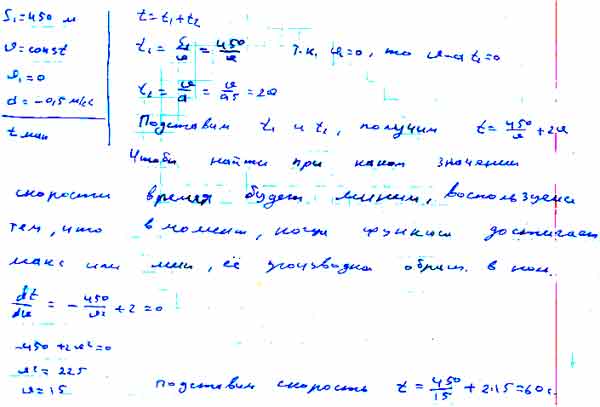 S₁=450 м
v=const
v₁=0
a=-0,5 м/с²
t мин
t=t₁+t₂
t₁=S₁/v=450/v т.к. v₁=0, то v-at₂=0
t₂=v/a=v/0,5=2v
Подставим t₁ и t₂, получим t=450/v+2v
Чтобы найти при каком значении
скорости время будет миним, воспользуемся
тем, что в момент, когда функция достигает
макс или мин, её производная обращ. в ноль.
dt/dv=-450/v²+2=0
-450+2v²=0
v²=225
v=15
подставим скорость t=450/15+2·15=60с.